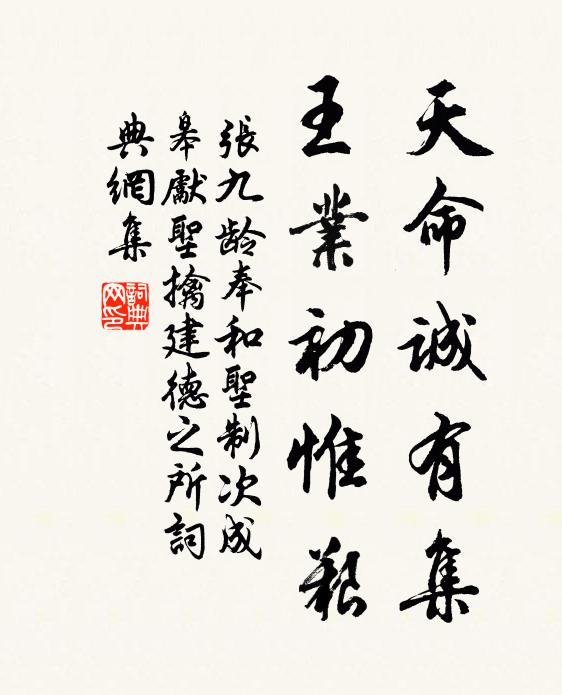 天命誠有集
王業初惟艱
張九龄奉和聖制次成
皋獻聖擒建德之所詞
典網集
詞典网印